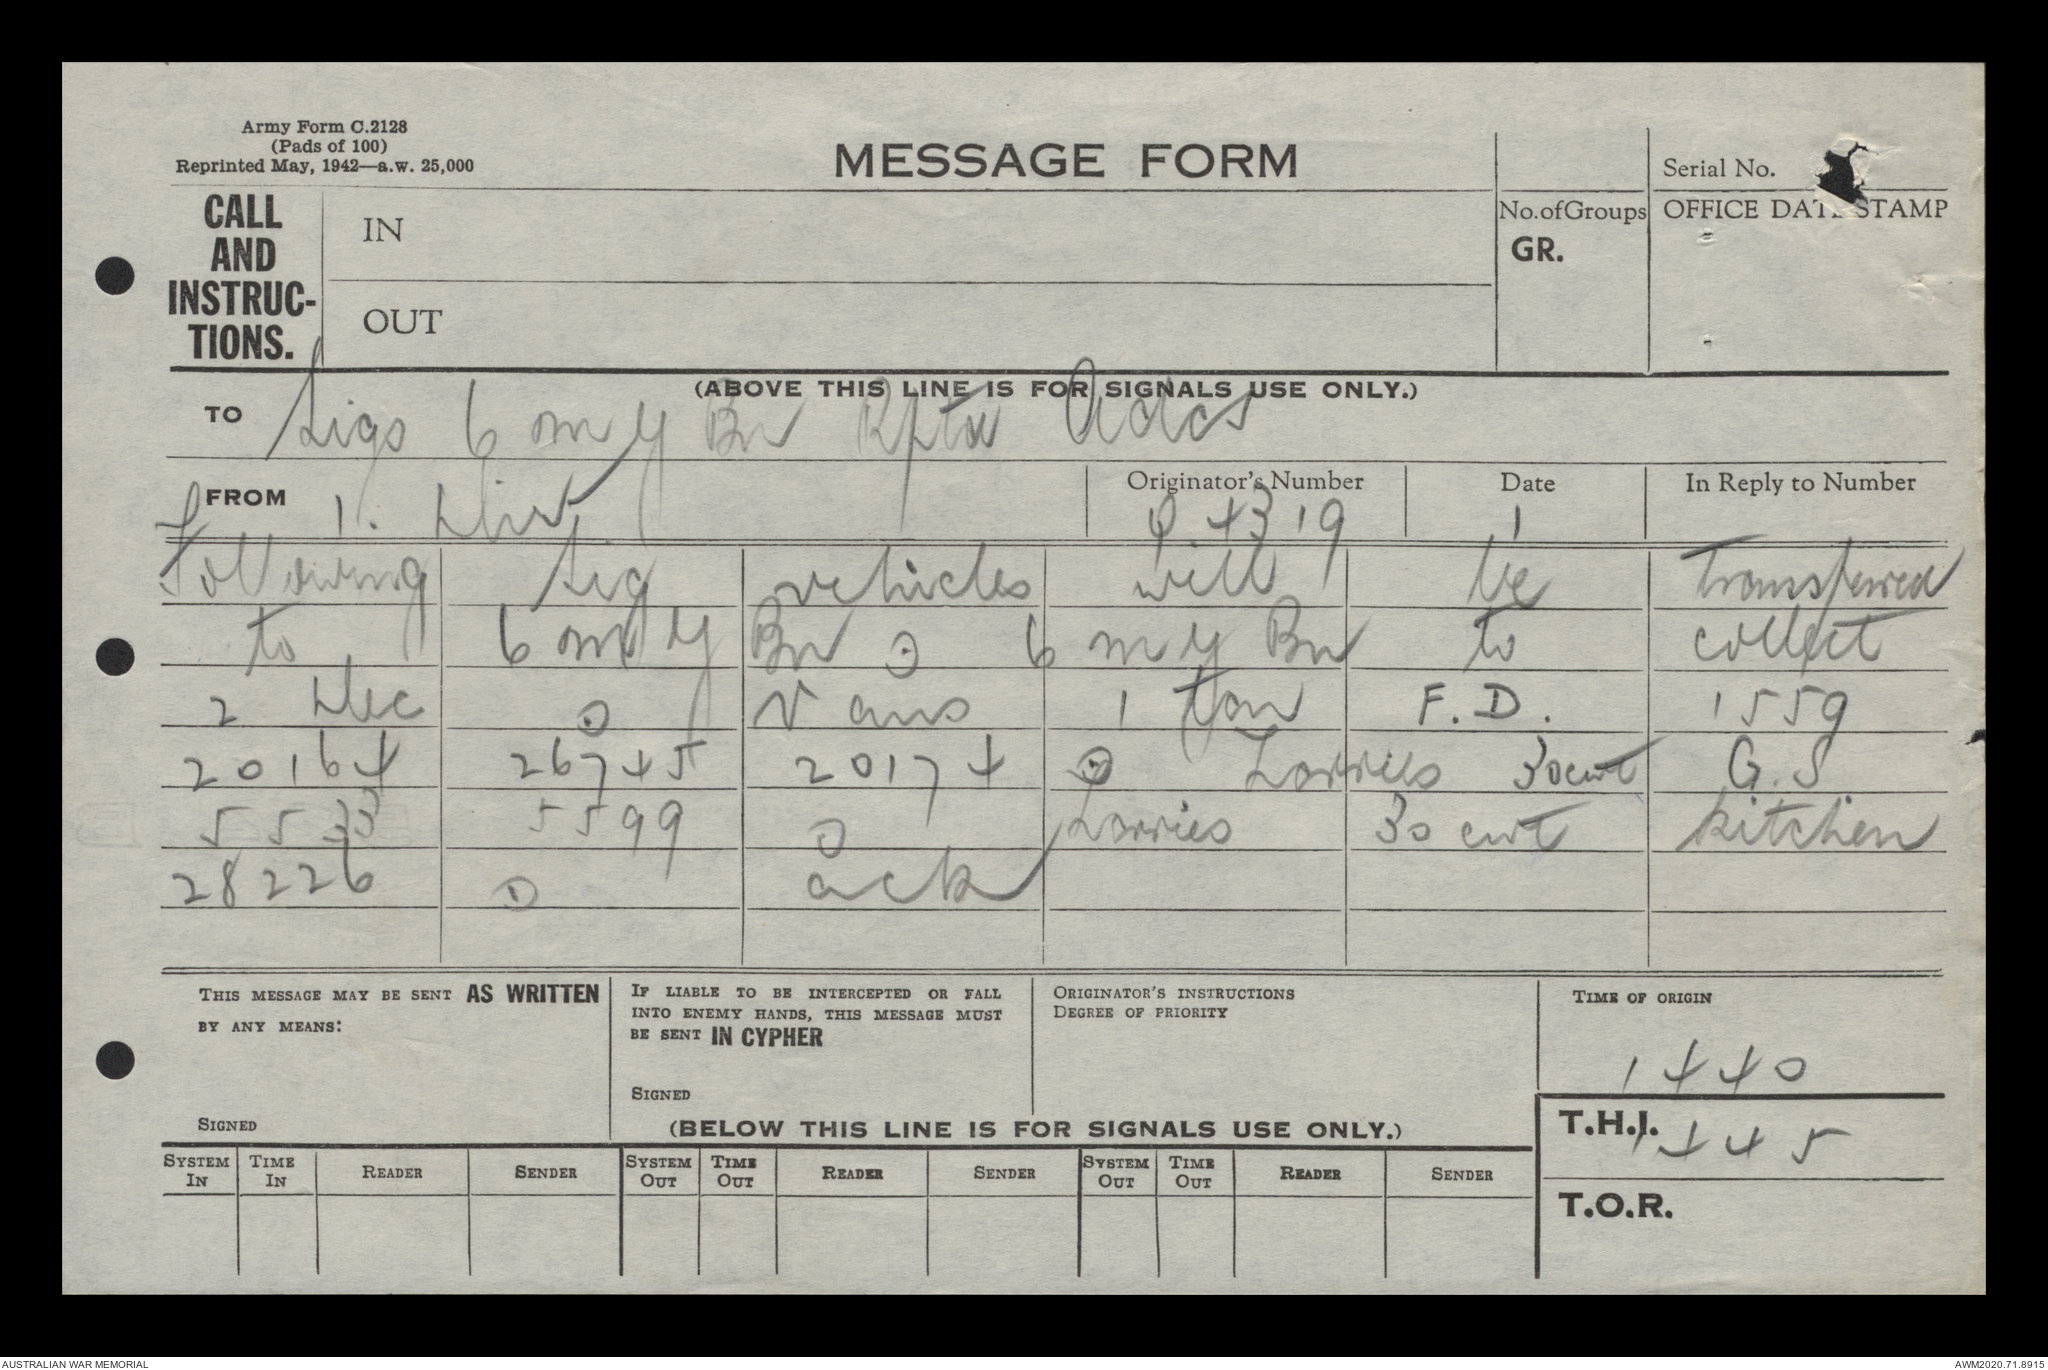 Army Form C.2128
(Pads of 100)
Reprinted May, 1942—a.w. 25,000
MESSAGE FORM
Serial No.
CALL
AND
INSTRUC-
TIONS.
IN
OUT
No. of Groups
GR.
OFFICE DATE STAMP
(ABOVE THIS LINE IS FOR SIGNALS USE ONLY.)
TO Sigs 6 M G Bn Rptd Adcs
FROM 1. Div
Originator's Number
Q 4319
Date
1
In Reply to Number
Following Sig vehicles will be transferred
to 6 M G Bn 6 M G Bn to collect
2 Dec Vans 1 ton F.D. 1559
20164 26745 20174 Lorries 30cwt G.S
5533 5599 Lorries 30 cwt kitchen
28226 ack
THIS MESSAGE MAY BE SENT AS WRITTEN
BY ANY MEANS:
SIGNED
IF LIABLE TO BE INTERCEPTED OR FALL
INTO ENEMY HANDS, THIS MESSAGE MUST
BE SENT IN CYPHER
SIGNED
ORIGINATOR'S INSTRUCTIONS
DEGREE OF PRIORITY
TIME OF ORIGIN
1440
(BELOW THIS LINE IS FOR SIGNALS USE ONLY.)
T.H.I. 1445
T.O.R.
SYSTEM IN TIME IN READER SENDER SYSTEM OUT TIME OUT READER SENDER SYSTEM OUT TIME OUT READER SENDER
AUSTRALIAN WAR MEMORIAL
AWM2020.71.8915